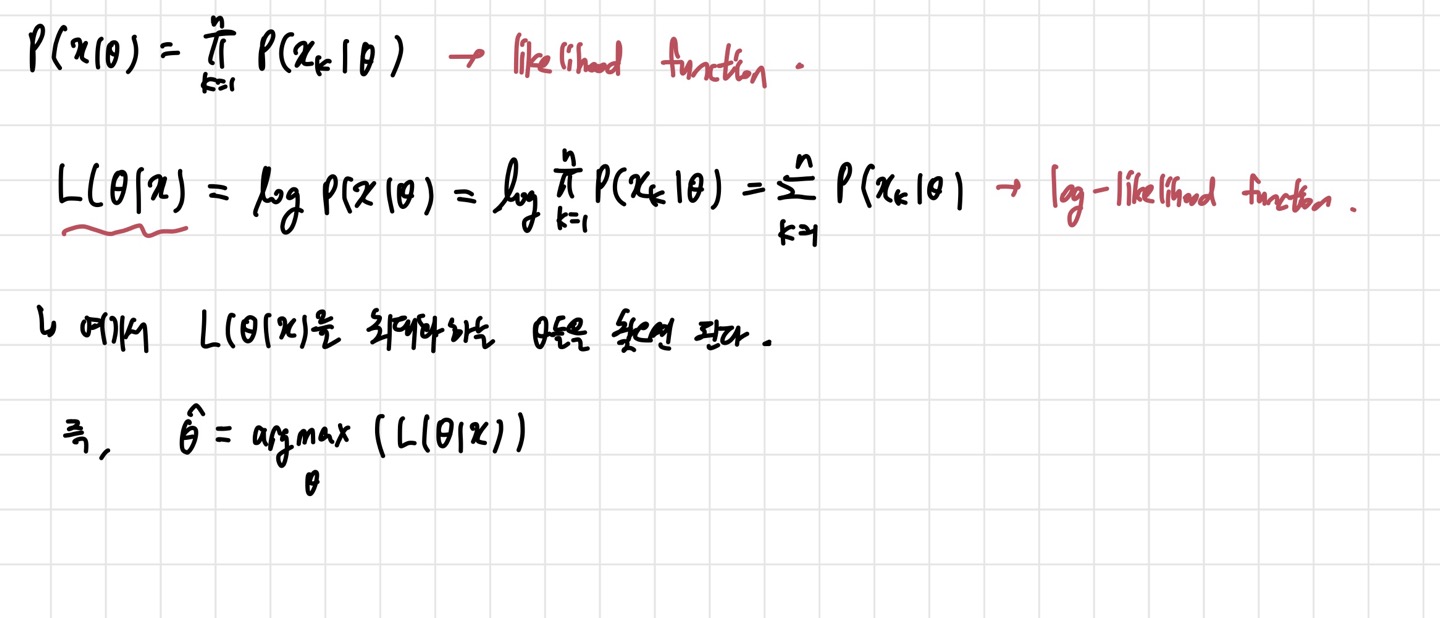 P(x|θ) = ∏_{k=1}^{n} P(x_k|θ) → likelihood function.
L(θ|x) = log P(x|θ) = log ∏_{k=1}^{n} P(x_k|θ) = ∑_{k=1}^{n} P(x_k|θ) → log-likelihood function.
↳ 여기서 L(θ|x)을 최대화하는 θ들을 찾으면 된다.
즉, θ̂ = argmax_θ (L(θ|x))